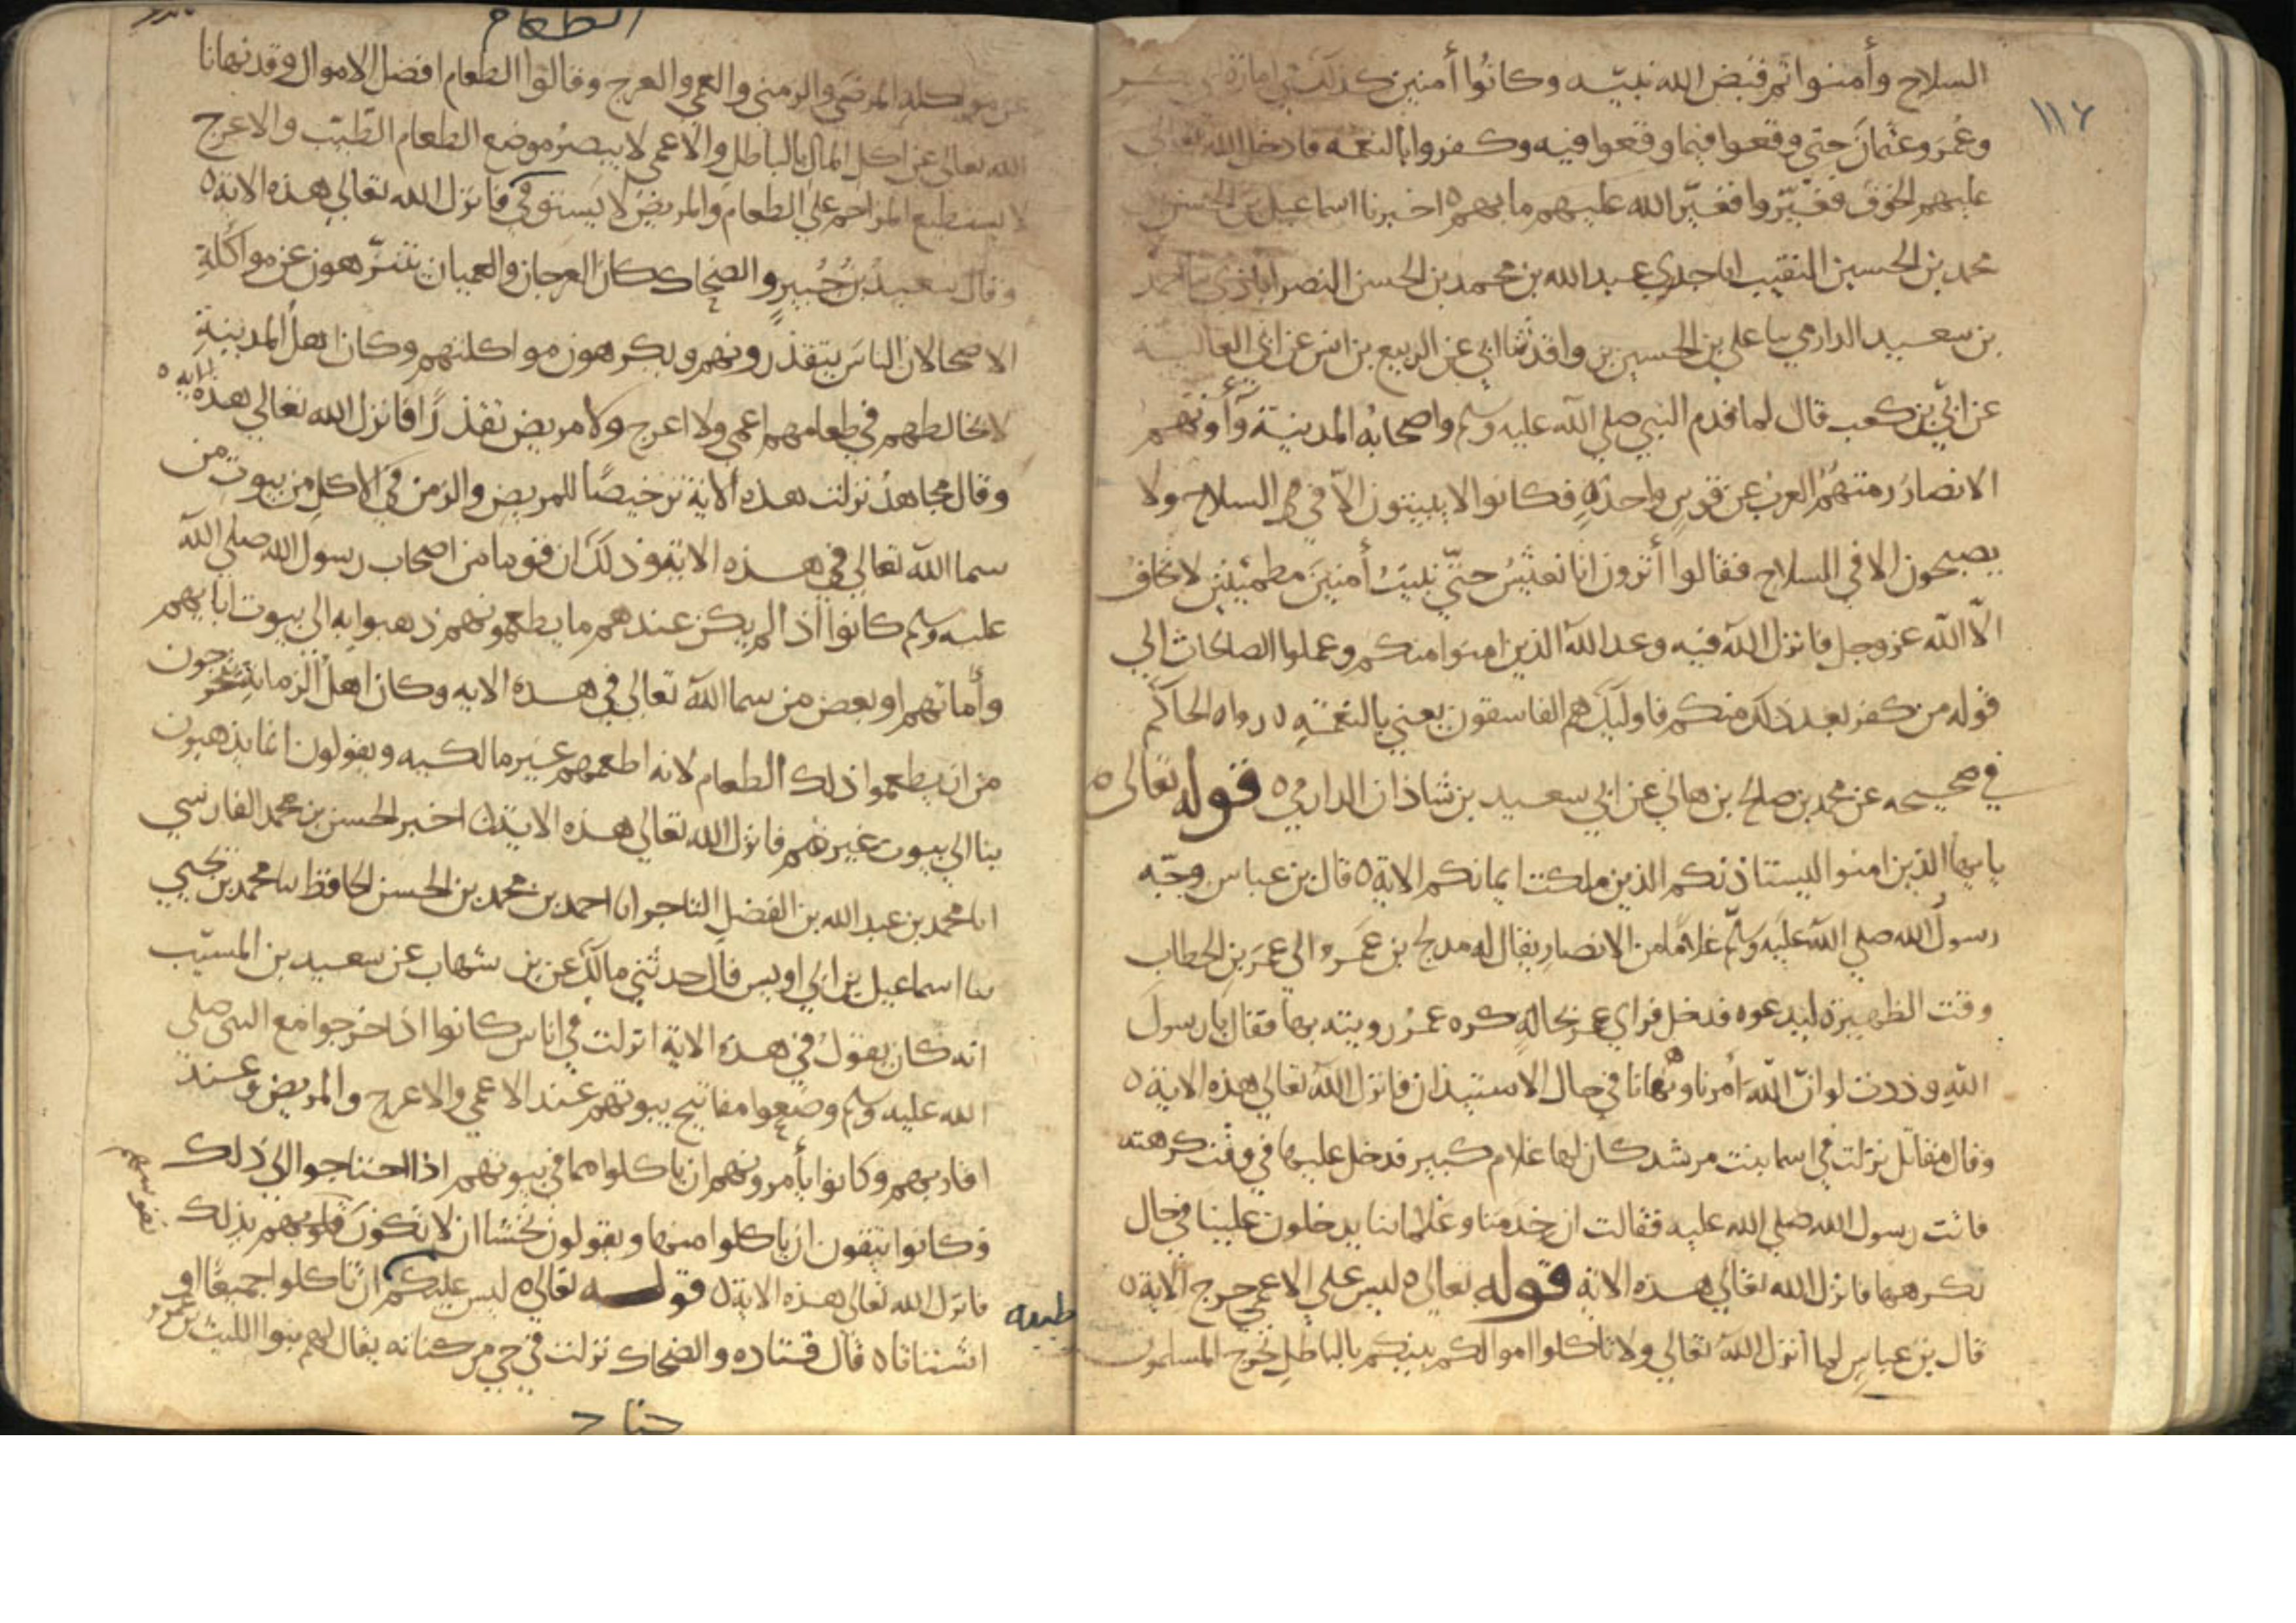 ١١٦
السلاح وأمنوا ثم قبض الله نبيه وكانوا أمنين كذلك في امارة ابي بكر
وعمر وعثمان حتى وقعوا فيما وقعوا فيه وكفروا بالنعمة فادخل الله تعالى
عليهم الخوف فغيروا فغير الله عليهم ما بهم ٥ اخبرنا اسماعيل بن الحسن بن
محمد بن الحسين النقيب انا جدي عبد الله بن محمد بن الحسن النصراباذي نا محمد
بن سعيد الدارمي نا علي بن الحسين بن واقد ثنا ابي عن الربيع بن انس عن ابي العالية
عن ابي بن كعب قال لما قدم النبي صلى الله عليه وسلم واصحابه المدينة وآوتهم
الانصار رمتهم العرب عن قوس واحدة فكانوا لا يبيتون الا في السلاح ولا
يصبحون الا في السلاح فقالوا أترون انا نعيش حتى نبيت أمنين مطمئنين لا نخاف
الا الله عز وجل فانزل الله فيه وعد الله الذين امنوا منكم وعملوا الصالحات الى
قوله من كفر بعد ذلك منكم فاوليك هم الفاسقون يعني بالنعمة ٥ رواه الحاكم
في صحيحه عن محمد بن صالح بن هاني عن ابي سعيد بن شاذان الدارمي ٥ قوله تعالى ٥
يايها الذين امنوا ليستاذنكم الذين ملكت ايمانكم الاية ٥ قال بن عباس وجه
رسول الله صلى الله عليه وسلم غلاما من الانصار يقال له مدلج بن عمرو الى عمر بن الخطاب
وقت الظهيرة ليدعوه فدخل فراي عمر بحالة كره عمر رويته بها فقال يا رسول
الله وددت لو ان الله أمرنا ونهانا في حال الاستيذان فانزل الله تعالى هذه الاية ٥
وقال مقاتل نزلت في اسما بنت مرشد كان لها غلام كبير فدخل عليها في وقت كرهته
فاتت رسول الله صلى الله عليه فقالت ان خدمنا وغلماننا يدخلون علينا في حال
نكرهها فانزل الله تعالى هذه الاية قوله تعالى ٥ ليس على الاعمى حرج الاية ٥
قال بن عباس لما أنزل الله تعالى ولا تاكلوا اموالكم بينكم بالباطل تحرج المسلمون
الطعام
عن مواكلة المرضى والزمنى والعمي والعرج وقالوا الطعام افضل الاموال وقد نهانا
الله تعالى عن اكل المال بالباطل والاعمى لا يبصر موضع الطعام الطيب والاعرج
لا يستطيع المزاحمة على الطعام والمريض لا يستوفي فانزل الله تعالى هذه الاية ٥
وقال سعيد بن جبير والضحاك كان العرجان والعميان يتنزهون عن مواكلة
الاصحا لان الناس يتقذرونهم ويكرهون مواكلتهم وكان اهل المدينة
لا يخالطهم في طعامهم اعمى ولا اعرج ولا مريض تقذرا فانزل الله تعالى هذه الاية ٥
وقال مجاهد نزلت هذه الاية ترخيصا للمريض والزمن في الاكل من بيوت من
سما الله تعالى في هذه الاية وذلك ان قوما من اصحاب رسول الله صلى الله
عليه وسلم كانوا اذا لم يكن عندهم ما يطعمونهم ذهبوا به الى بيوت ابايهم
وأماتهم او بعض من سما الله تعالى في هذه الايه وكان اهل الزمانة يتحرجون
من ان يطعموا ذلك الطعام لانه اطعمهم غير مالكيه ويقولون انما يذهبون
بنا الى بيوت غيرهم فانزل الله تعالى هذه الاية ٥ اخبر الحسن بن محمد الفارسي
انا محمد بن عبد الله بن الفضل التاجر انا احمد بن محمد بن الحسن الحافظ نا محمد بن يحيى
نا اسماعيل بن ابي اويس قال حدثني مالك عن بن شهاب عن سعيد بن المسيب
انه كان يقول في هذه الاية انزلت في اناس كانوا اذا خرجوا مع النبي صلى
الله عليه وسلم وضعوا مفاتيح بيوتهم عند الاعمى والاعرج والمريض وعند
اقاربهم وكانوا يأمرونهم ان ياكلوا مما في بيوتهم اذا احتاجوا الى ذلك
وكانوا يتقون ان ياكلوا منها ويقولون نخشا ان لا تكون قلوبهم بذلك
نفوسهم
طيبه
فانزل الله تعالى هذه الاية ٥ قوله تعالى ٥ ليس عليكم ان تاكلوا جميعا او
اشتاتا ٥ قال قتاده والضحاك نزلت في حي من كنانه يقال لهم بنوا الليث بن عمرو
جناح